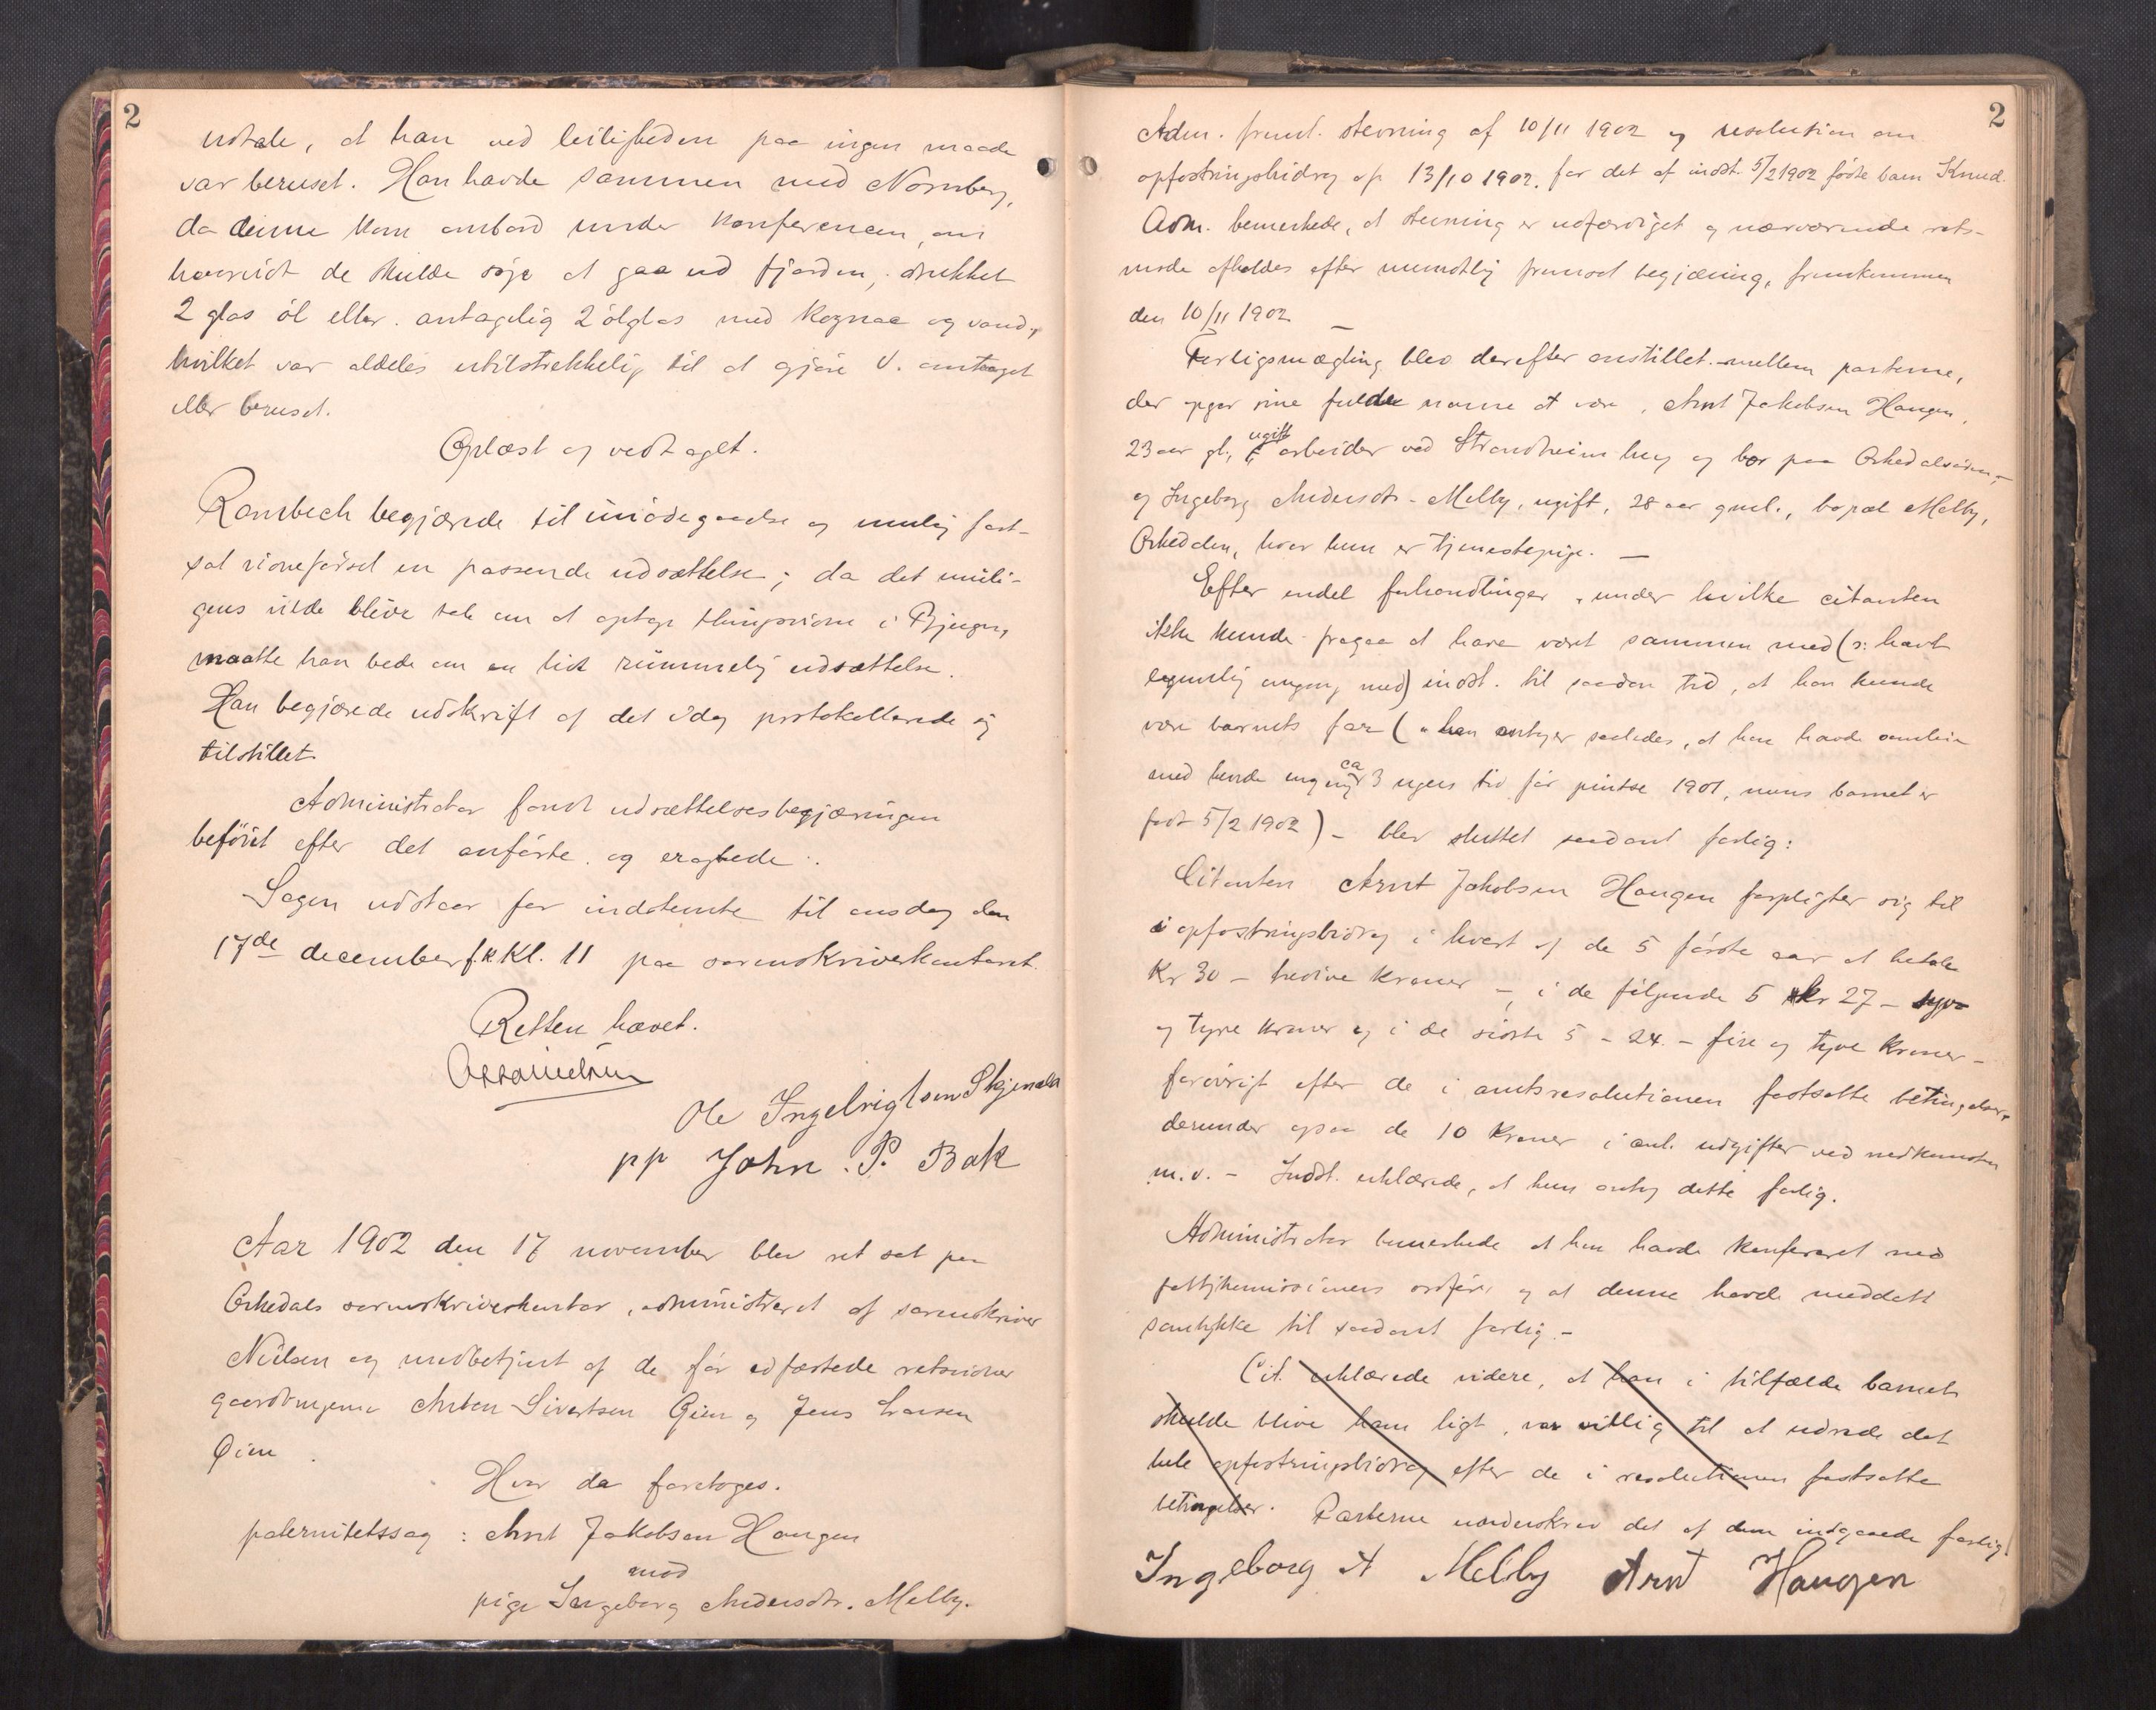 2
udtale, at han ved leiligheden paa ingen maade
var beruset. Han havde sammen med Nornberg,
da denne kom ombord under konferencen, om
hvorvidt de skulde söge at gaa ud fjorden, drukket
2 glas öl eller antagelig 2 ölglas med kognac og vand,
hvilket var aldeles utilstrekkelig til at gjöre V. antaget
eller beruset.
Oplæst og vedtaget.
Rambech begjærede til imödegaaelse og mulig fort-
sat vidneförsel en passende udsættelse; da det muli-
gens vilde blive tale om at optage thingsvidne i Bjugn,
maatte han bede om en lidt rummelig udsættelse.
Han begjærede udskrift af det idag protokollerede sig
tilstillet.
Administrator fandt udsættelsesbegjæringen
beföiet efter det anförte og eragtede:
Sagen udstaar for indstevnte til onsdag den
17de december f. k. kl. 11 paa sorenskriverkontoret.
Retten hævet.
Ole Ingebrigtsen Skjenald
pp John P. Bak
Aar 1902 den 17 november blev ret sat paa
Orkedals sorenskriverkontor, administreret af sorenskriver
Nielsen og medbetjent af de för edfæstede retsvidner
gaardbrugerne Anton Sivertsen Gjen og Jens Larsen
Öien.
Hvor da foretoges.
paternitetssag: Arnt Jakobsen Haugen
mod
pige Ingeborg Andersdtr. Melby.
2
Adm. freml. stevning af 10/11 1902 og resolution om
opfostringsbidrag af 13/10 1902, for det af indst. 5/2 1902 födte barn Knud.
Adm. bemerkede, at stevning er udfærdiget og nærværende rets-
möde afholdes efter mundtlig fremsat begjæring, fremkommen
den 10/11 1902 –
Forligsmægling blev derefter anstillet mellem parterne,
der opgav sine fulde navne at være, Arnt Jakobsen Haugen,
23 aar gl., ugift arbeider ved Strandheim brug og bor paa Orkedalsören, –
og Ingeborg Andersdtr. Melby, ugift, 28 aar gml., bopæl Melby,
Orkedalen, hvor hun er tjenestepige. –
Efter endel forhandlinger, under hvilke citanten
ikke kunde fragaa at have været sammen med (ɔ: havt
legemlig omgang med) indst. til saadan tid, at han kunde
være barnets far (han antyder saaledes, at han havde samleie
med hende ca 3 ugers tid för pintse 1901, mens barnet er
födt 5/2 1902) – blev sluttet saadant forlig:
Citanten Arnt Jakobsen Haugen forpligter sig til
i opfostringsbidrag i hvert af de 5 förste aar at betale
Kr 30 – tredive kroner –, i de fölgende 5 kr 27 – syv
og tyve kroner og i de sidste 5 – 24 – fire og tyve kroner –
forövrigt efter de i amtsresolutionen fastsatte betingelser,
derunder ogsaa de 10 kroner i anl. udgifter ved nedkomsten
m.v. – Indst. erklærede, at hun antog dette forlig.
Administrator bemerkede at han havde konfereret med
fattigkommissionens ordförer og at denne havde meddelt
samtykke til saadant forlig. –
Cit. erklærede videre, at han i tilfælde barnet
skulde blive ham ligt, var villig til at udrede det
hele opfostringsbidrag efter de i resolutionen fastsatte
betingelser. Parterne underskrev det af dem indgaaede forlig.
Ingeborg A Melby Arnt Haugen